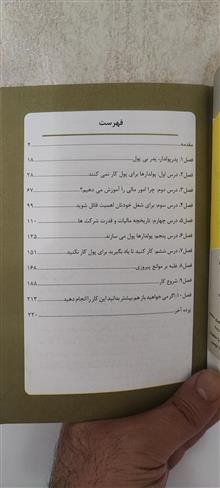 فهرست
مقدمه ۴
فصل۱: پدرپولدار، پدر بی پول ۱۸
فصل۲: درس اول: پولدارها برای پول کار نمی کنند ۲۸
فصل۳: درس دوم: چرا امور مالی را آموزش می دهیم؟ ۶۷
فصل۴: درس سوم: برای شغل خودتان اهمیت قائل شوید ۹۹
فصل۵: درس چهارم: تاریخچه مالیات و قدرت شرکت ها ۱۱۰
فصل۶: درس پنجم: پولدارها پول می سازند ۱۲۵
فصل۷: درس ششم: کار کنید تا یاد بگیرید برای پول کار نکنید ۱۵۱
فصل۸: غلبه بر موانع پیروزی ۱۶۸
فصل۹: شروع کار ۱۸۸
فصل۱۰: اگر می خواهید باز هم بیشتر بدانید این کار را انجام دهید ۲۱۳
پرده آخر ۲۲۰